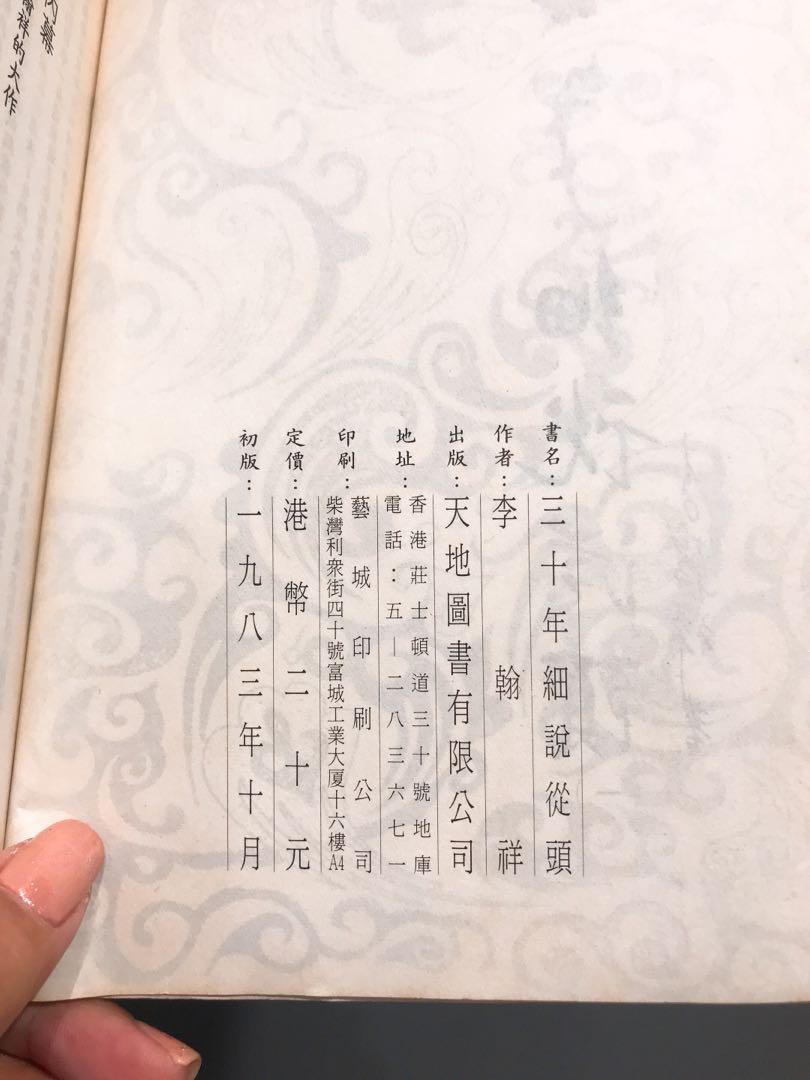 書名：三十年細說從頭
作者：李翰祥
出版：天地圖書有限公司
地址：香港莊士頓道三十號地庫
電話：五—二八三六七一
印刷：藝城印刷公司
柴灣利衆街四十號富城工業大厦十六樓A4
定價：港幣二十元
初版：一九八三年十月
祥的大作